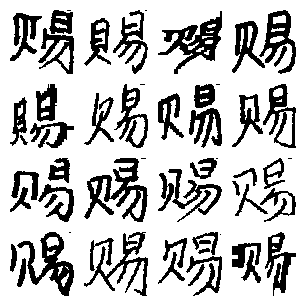 赐賜赐赐
賜赐赐赐
赐赐赐赐
赐赐赐赐